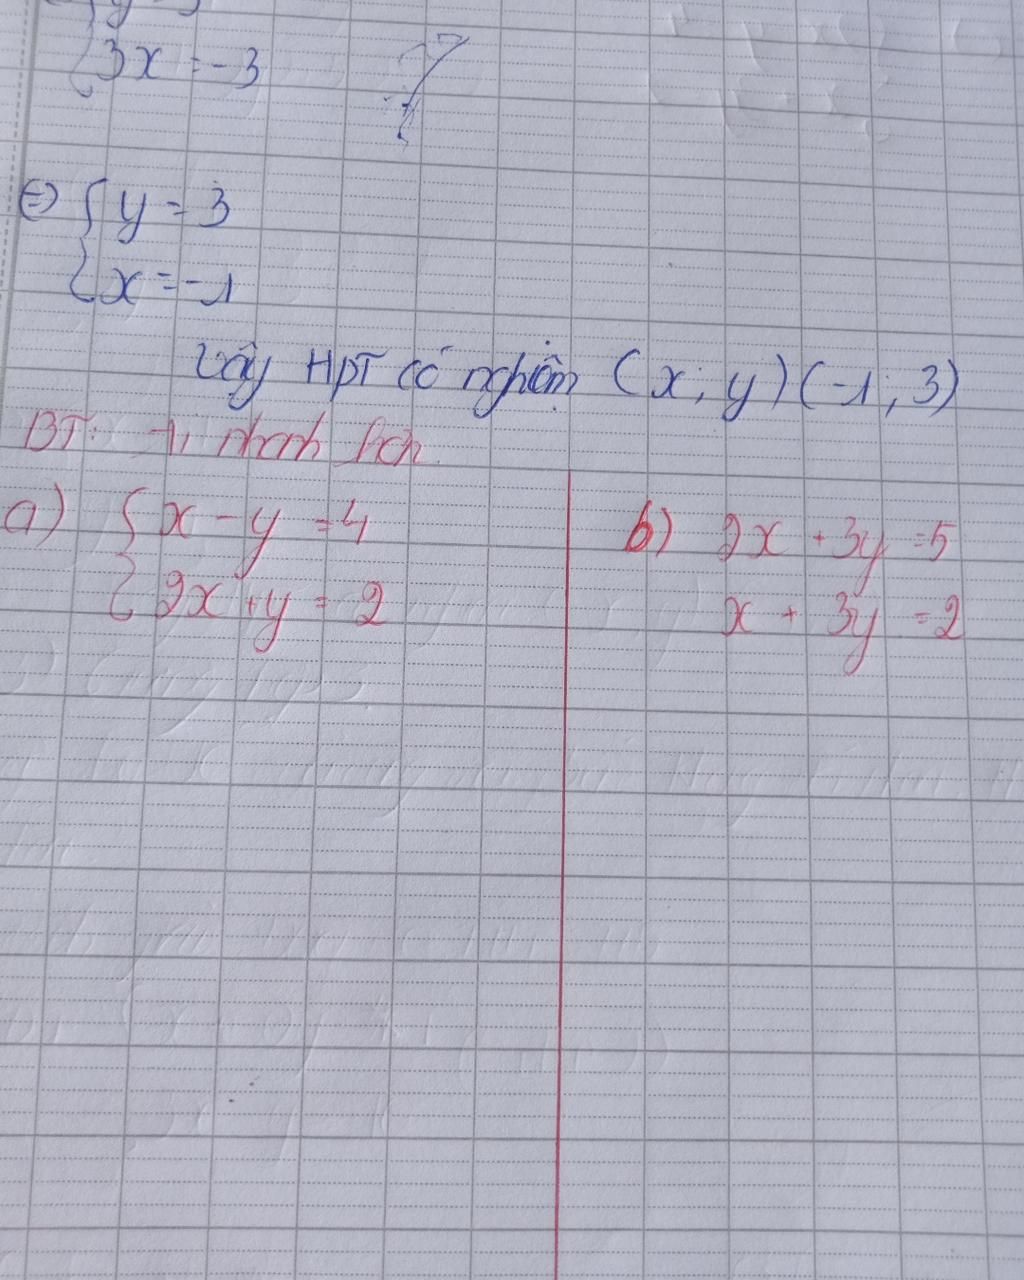 3x = -3
⇔ { y = 3
x = -1
Vậy HPT có nghiệm (x; y) (-1; 3)
BT:
a) { x - y = 4
2x + y = 2
b) 2x + 3y = 5
x + 3y = 2